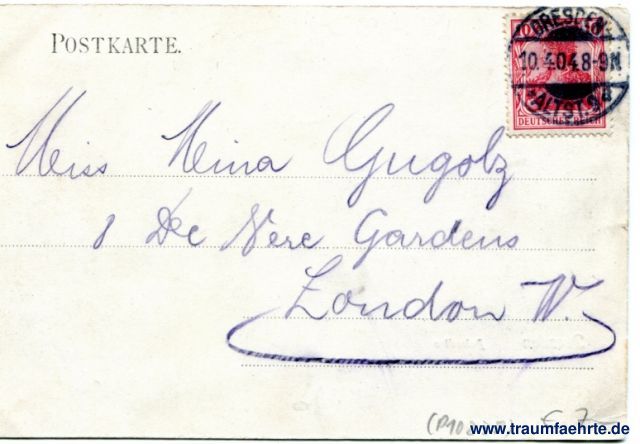 POSTKARTE.
DRESDEN-
10.4.04.8-9N
*ALTST.
DEUTSCHES REICH
Miss Mina Gugolz
8 De Vere Gardens
London W.
www.traumfaehrte.de